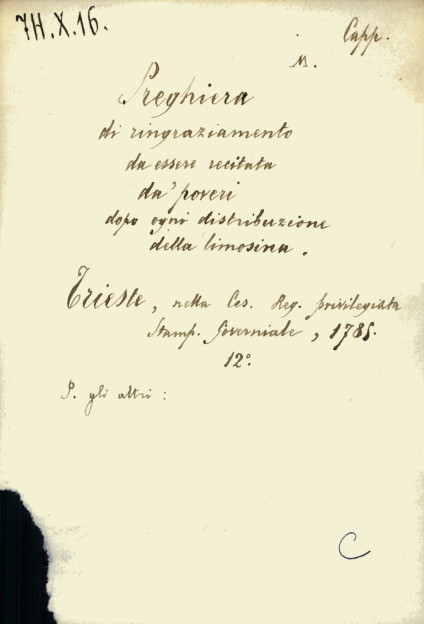 7H.X.16.
Capp.
M.
Preghiera
di ringraziamento
da essere recitata
da' poveri
dopo ogni distribuzione
della limosina.
Trieste, nella Ces. Reg. privilegiata
Stamp. Governiale, 1785.
12°.
P. gli altri:
C